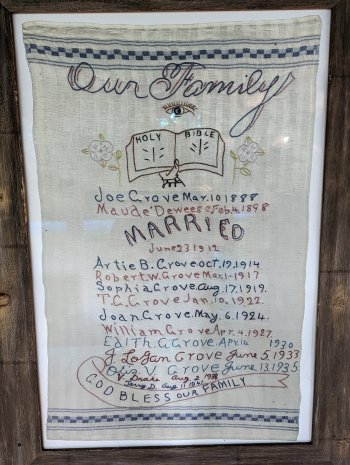 Our Family
HOLY BIBLE
Joe Grove Mar. 10 1888
Maude Deweese Feb. 14, 1898
MARRIED
June 23 1912
Artie B. Grove oct. 19, 1914
Robert W. Grove Mar. 1-1917
Sophia Grove, Aug. 17, 1919.
T.C. Grove Jan. 10, 1922.
Joan Grove, May, 6, 1924.
William Grove Apr. 4, 1927
Edith. G. Grove Apr. 14 1930
J. Logan Grove June 5, 1933
V. Grove June 13, 1935
V. Drake Aug 2
GOD BLESS OUR FAMILY